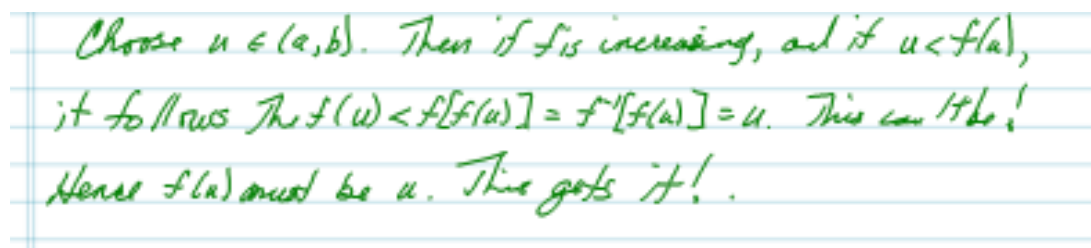 Choose u ∈ (a,b). Then if f is increasing, and if u < f(u),
it follows The f(u) < f[f(u)] = f⁻¹[f(u)] = u. This can't be!
Hence f(u) must be u. This gets it!.